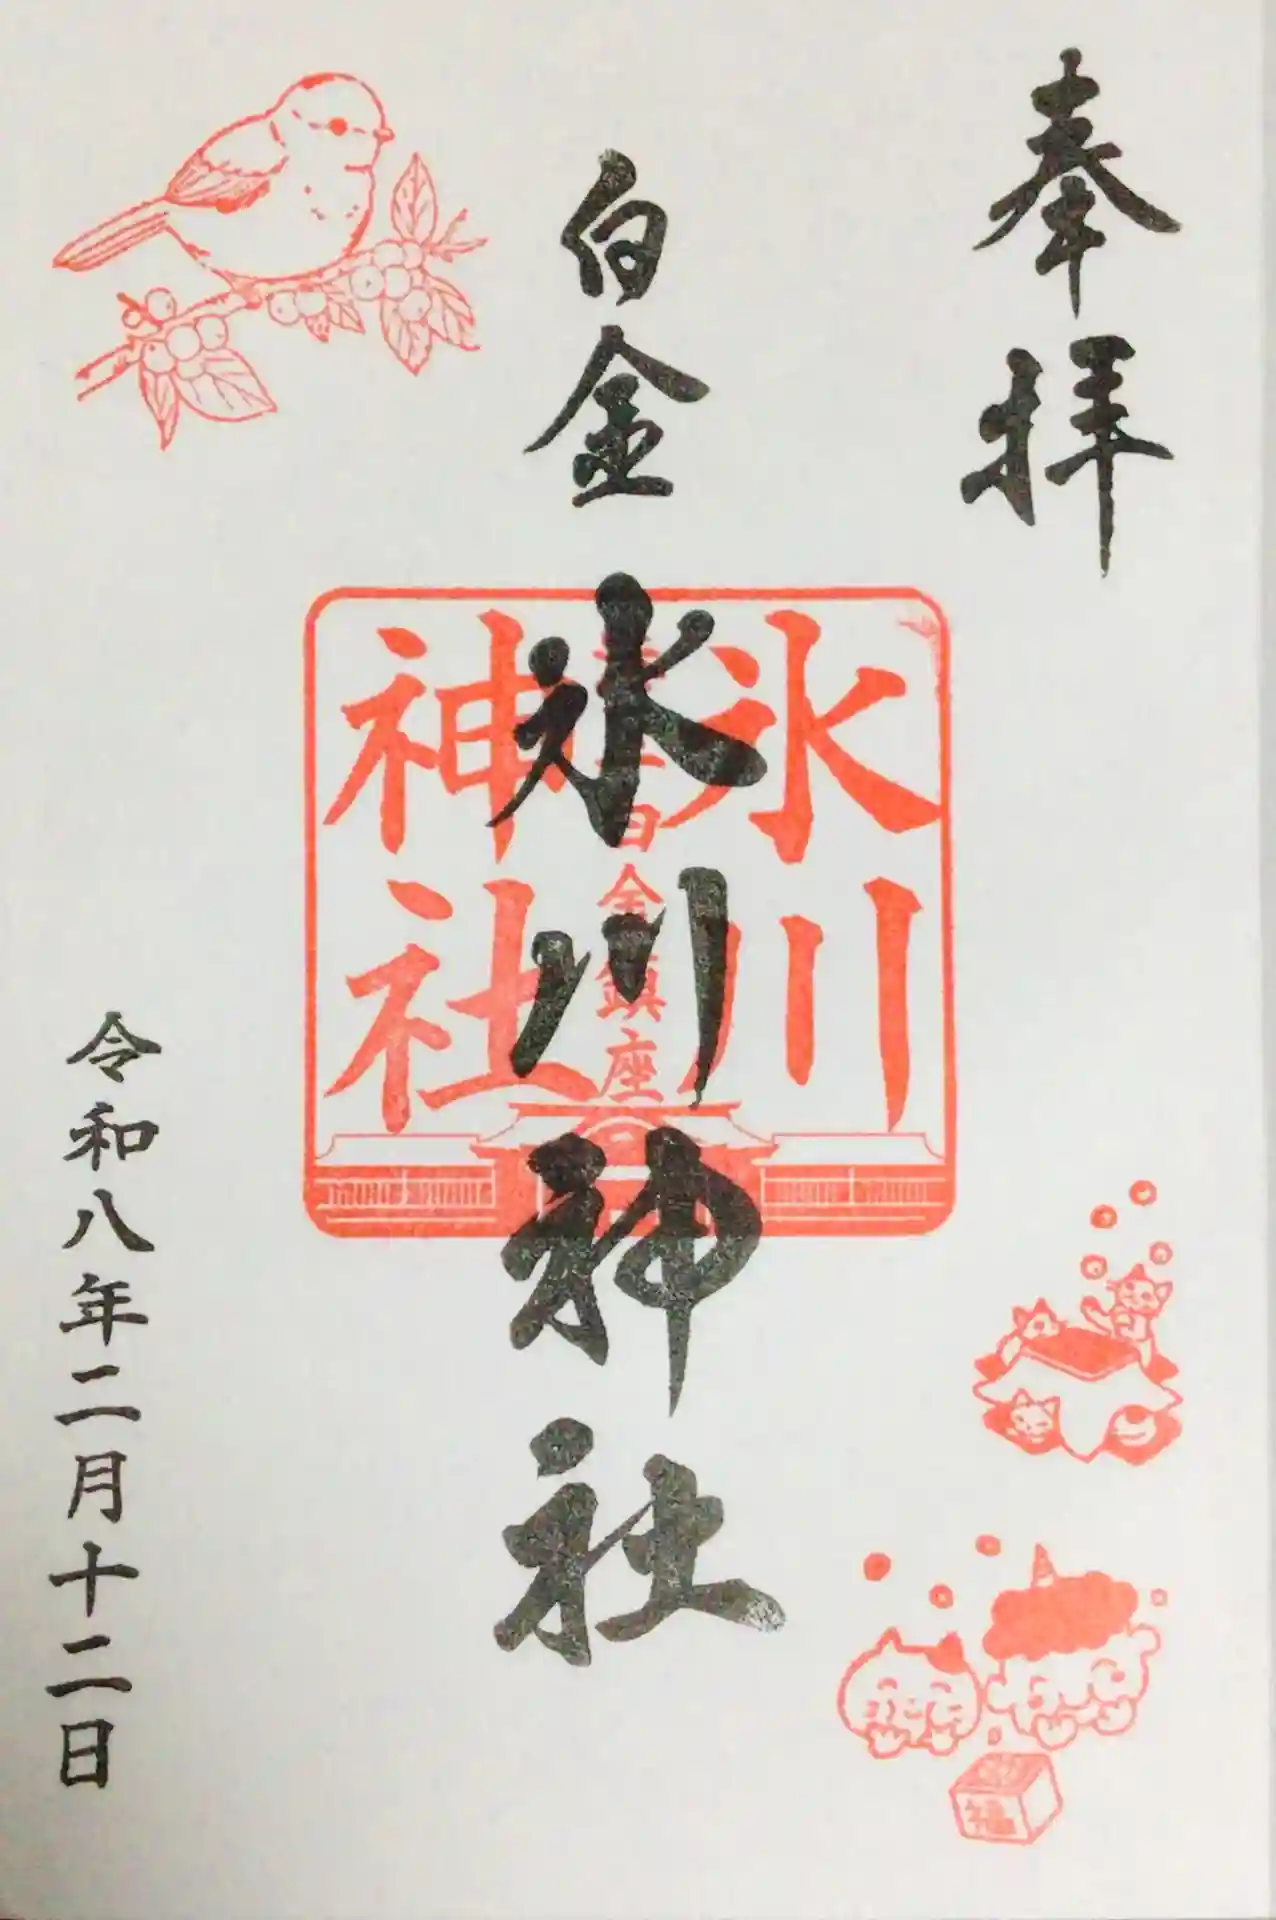 奉拝
白金
氷川神社
氷川
白金鎮座
神社
令和八年二月十二日
福